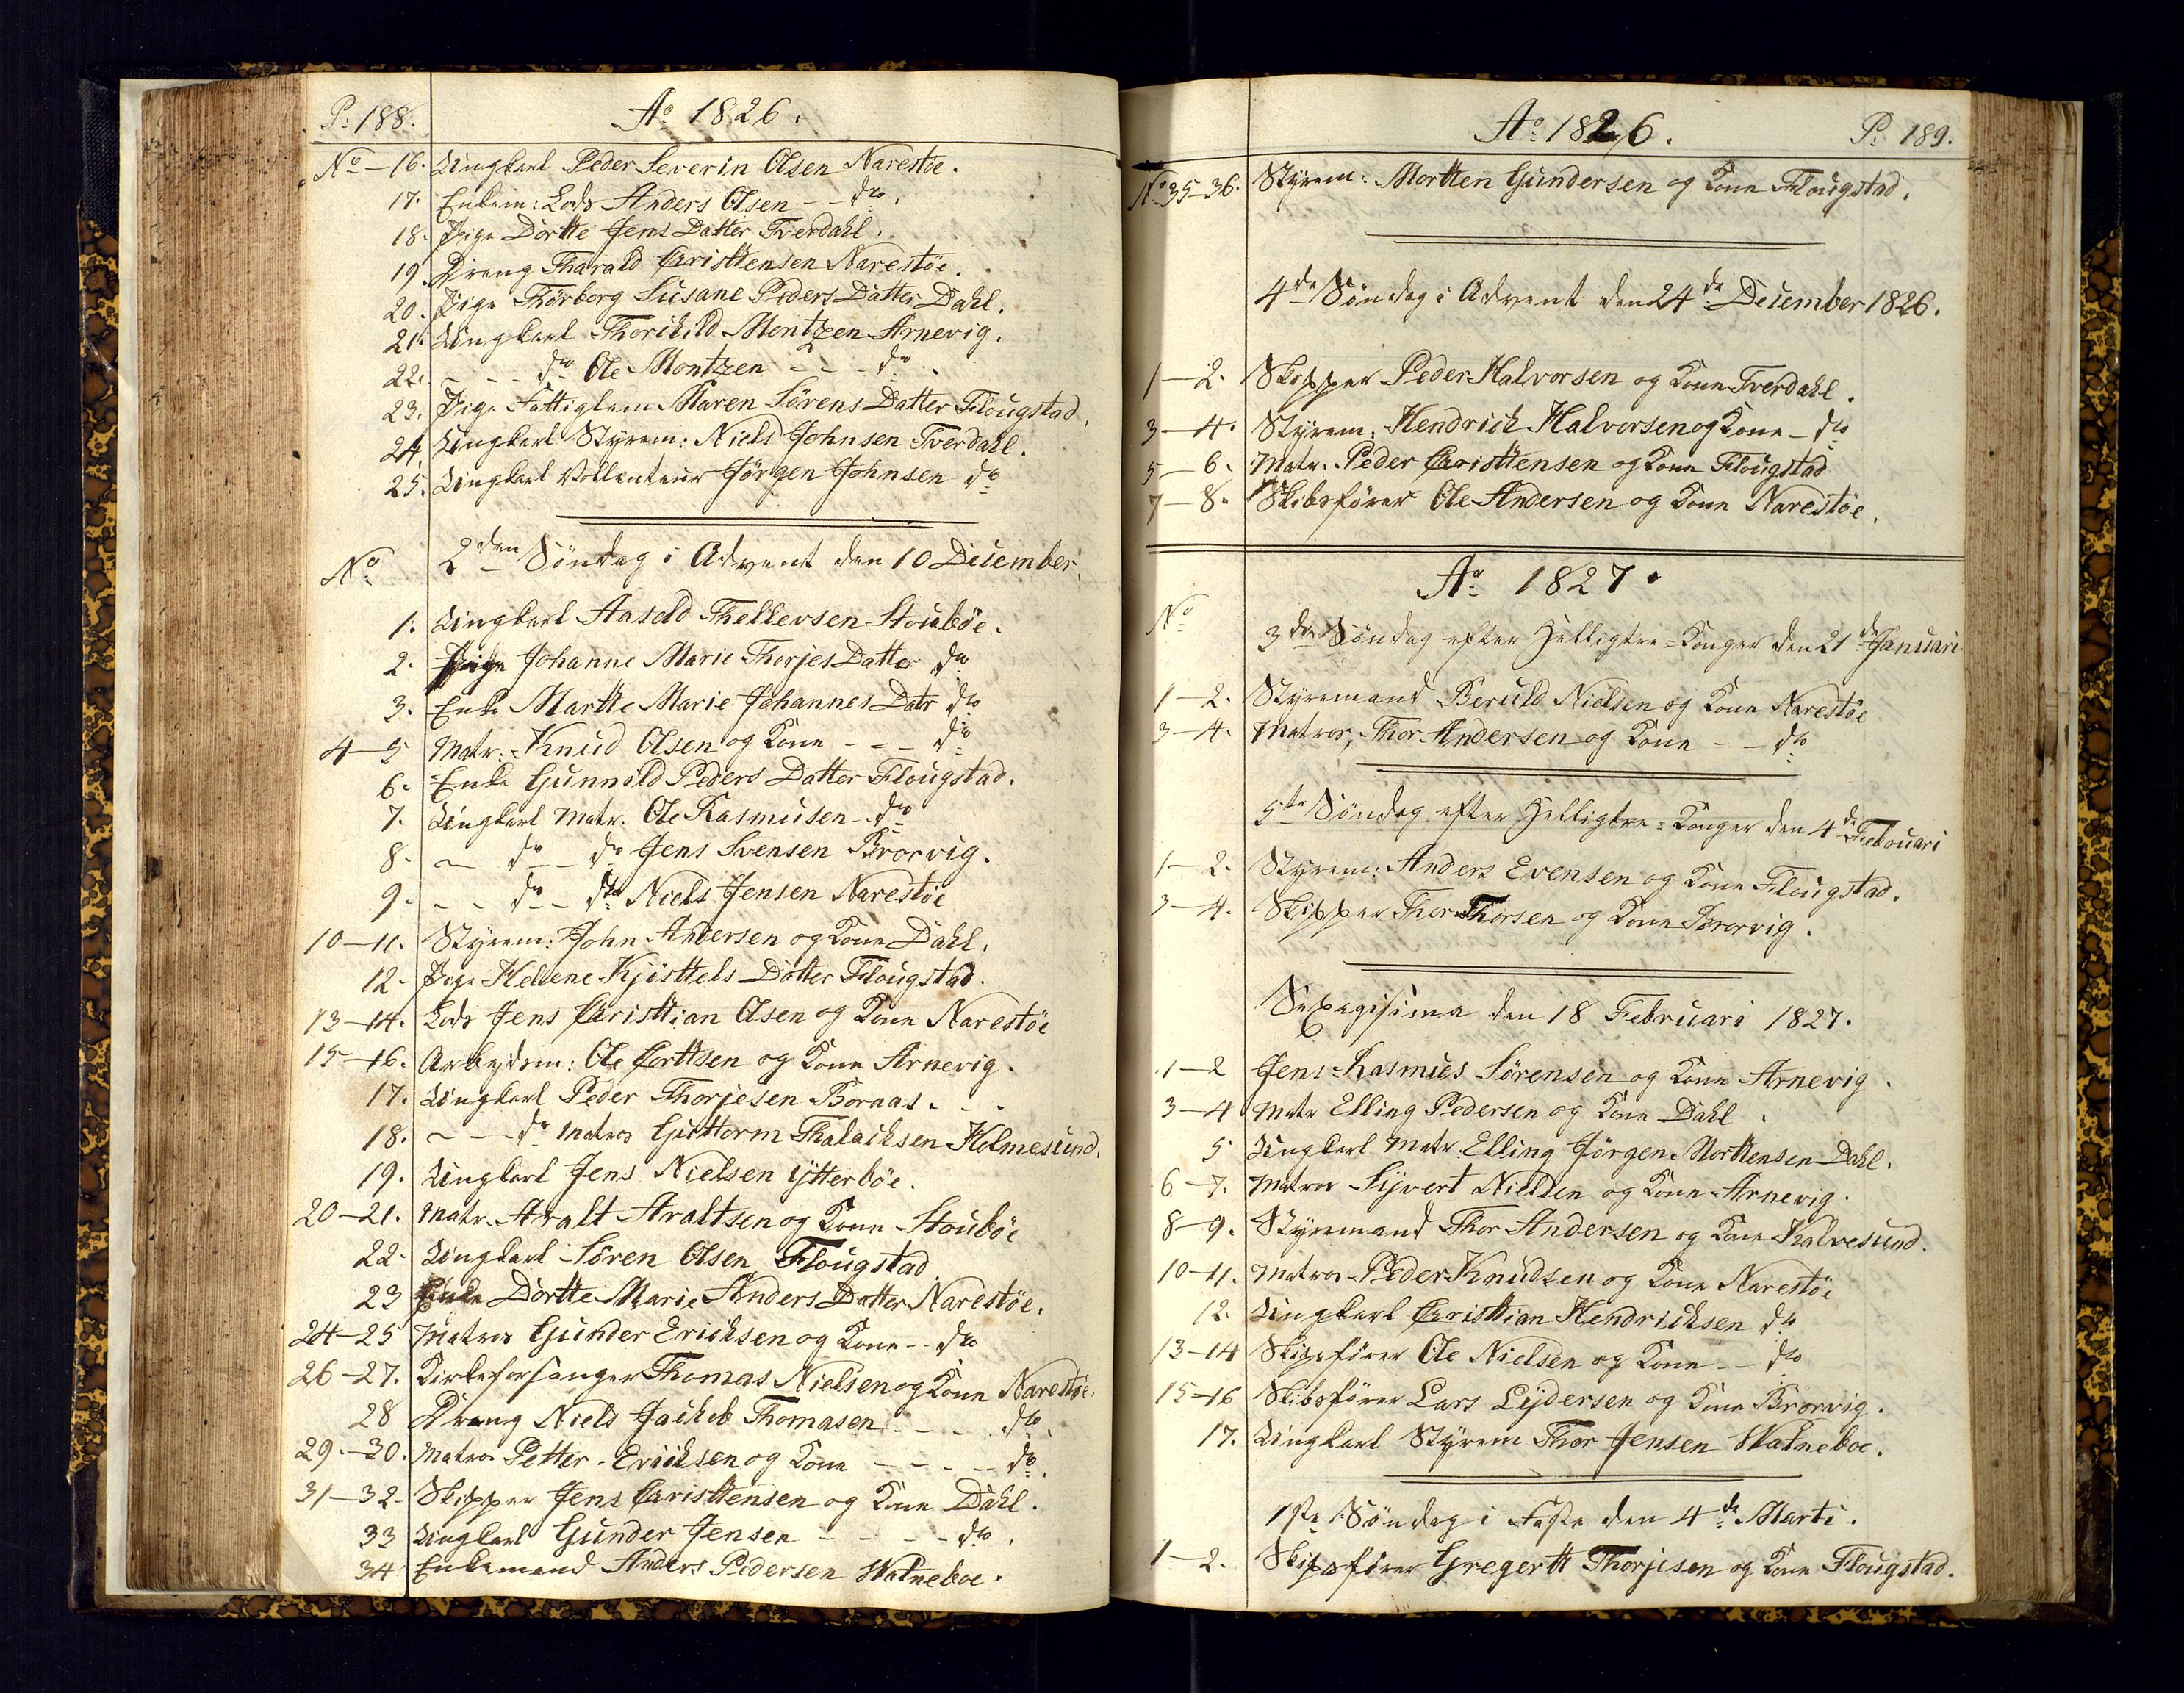 P: 188.
Ao 1826.
No – 16. Ungkarl Peder Severin Olsen Narestöe.
17. Enkem: Lods Anders Olsen - - do.
18. Pige Dortte Jens Datter Tverdahl.
19. Dreng Tharald Christtensen Narestöe.
20. Pige Thorborg Susane Peders Datter Dahl.
21. Ungkarl Thorikild Montzen Arnevig.
22. - - - do Ole Montzen - - - do.
23. Pige Fattiglem Maren Sörens Datter Flougstad.
24. Ungkarl Styrem: Niels Johnsen Tverdahl.
25. Ungkarl Vollenteur Jörgen Johnsen do
No 2den Söndag i Advent den 10 December.
1. Ungkarl Aaseld Thellevsen Stouböe.
2. Pige Johanne Marie Thorjes Datter do
3. Enke Martte Marie Johannes Datr do
4–5 Matr: Knud Olsen og Kone - - - do
6. Enke Gunnold Peders Datter Flougstad.
7. Ungkarl Matr. Ole Rasmusen - do
8. - do - do Jens Svensen Brorvig.
9. - - do - do Niels Jensen Narestöe
10–11. Styrem: John Andersen og Kone Dahl.
12. Pige Helene Kjisttels Datter Flougstad.
13–14. Lods Jens Christtian Olsen og Kone Narestöe
15–16. Arbejdsm: Ole Corttsen og Kone Arnevig.
17. Ungkarl Peder Thorjesen Bornas. - -
18. - - - do Matros Guttorm Thalaiksen Holmesund.
19. Ungkarl Jens Nielsen Ytterböe.
20–21. Matr. Aralt Araltsen og Kone Stouböe
22. Ungkarl Sören Olsen Flougstad
23 Enke Dortte Marie Anders Datter Narestöe.
24–25 Matros Gunder Ericksen og Kone - - do
26–27. Kirkeforsanger Thomas Nielsen og Kone Narestöe.
28 Dreng Niels Jaikob Thomasen - - - - do.
29.–30. Matros Petter Ericksen og Kone - - - - do.
31–32. Skipper Jens Christtensen og Kone Dahl.
33 Ungkarl Gunder Jensen - - - - do.
34 Enkemand Anders Pedersen Watneboe.
Ao 1826.
P: 189.
No 35–36. Styrem: Mortten Gundersen og Kone Flougstad.
4de Söndag i Advent den 24de December 1826.
1–2. Skipper Peder Halvorsen og Kone Tverdahl.
3–4. Styrem. Hendrick Halvorsen og Kone - do
5–6. Matr. Peder Christtensen og Kone Flougstad
7–8. Skibsförer Ole Andersen og Kone Narestöe.
Ao 1827.
No 3de Söndag efter Helligtre=Konger den 21de Januari
1–2. Styremand Beruld Nielsen og Kone Narestöe
3–4. Matros, Thor Andersen og Kone - - do
5te Söndag efter Helligtre=Konger den 4de Februari
1–2. Styrem: Anders Evensen og Kone Flougstad.
3–4. Skipper Thor Thorsen og Kone Brorvig.
Sexagisima den 18 Februari 1827.
1–2 Jens Rasmus Sörensen og Kone Arnevig.
3–4 Matr Elling Pedersen og Kone Dahl.
5 Ungkarl Matr: Elling Jörgen Morttensen Dahl.
6–7. Matros Sijvert Nielsen og Kone Arnevig.
8–9. Styremand Thor Andersen og Kone Kalvesund.
10–11. Matros Peder Knudsen og Kone Narestöe
12. Ungkarl Christtian Hendricksen do
13–14 Skipsförer Ole Nielsen og Kone - - do
15–16 Skibsförer Lars Lydersen og Kone Brorvig.
17. Ungkarl Styrem Thor Jensen Watneboe.
1ste Söndag i Faste den 4de Marti.
1–2. Skipsförer Gregertt Thorjesen og Kone Flougstad.